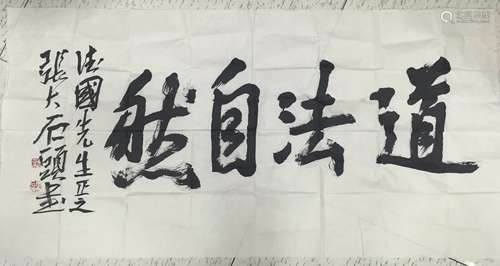 道法自然
法國先生正之
張大石頭書